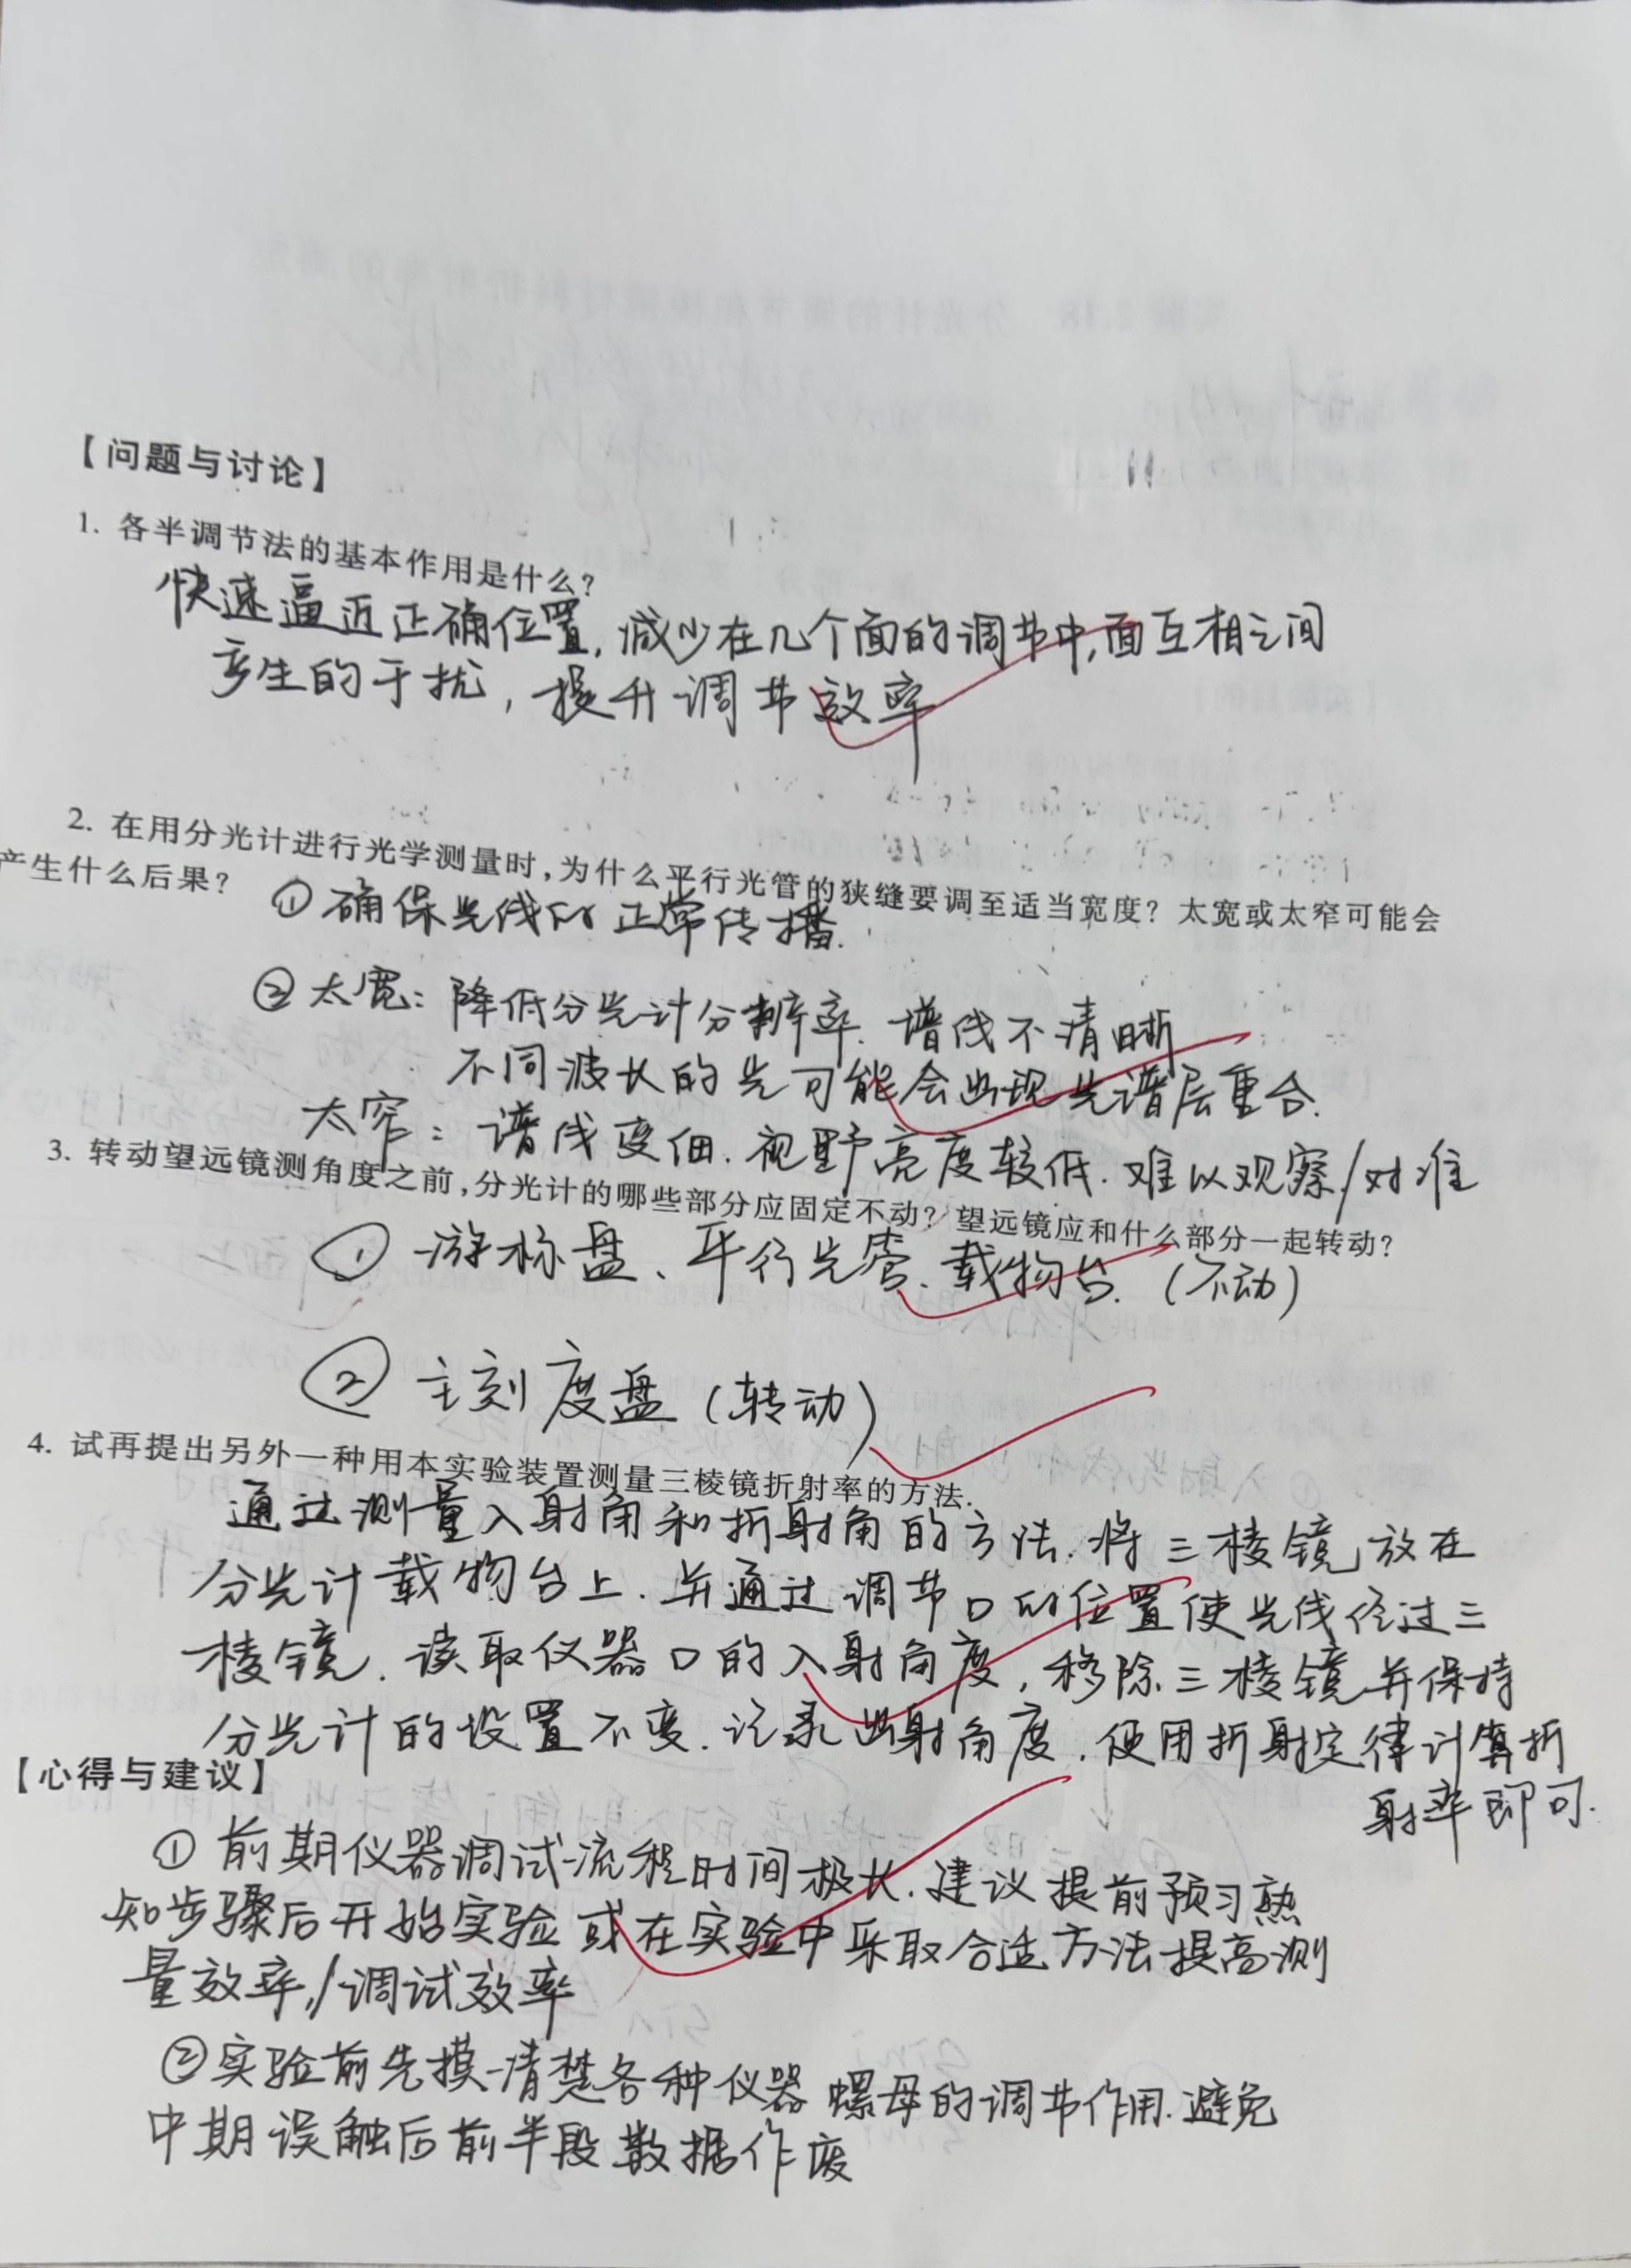 【问题与讨论】
1. 各半调节法的基本作用是什么?
快速逼近正确位置, 减少在几个面的调节中,面互相之间
产生的干扰, 提升调节效率
2. 在用分光计进行光学测量时,为什么平行光管的狭缝要调至适当宽度? 太宽或太窄可能会
产生什么后果?
①确保光线的正常传播.
②太宽: 降低分光计分辨率. 谱线不清晰
不同波长的光可能会出现光谱层重合.
太窄: 谱线变细. 视野亮度较低. 难以观察/对准
3. 转动望远镜测角度之前,分光计的哪些部分应固定不动? 望远镜应和什么部分一起转动?
① 游标盘、平行光管、载物台. (不动)
② 主刻度盘 (转动)
4. 试再提出另外一种用本实验装置测量三棱镜折射率的方法.
通过测量入射角和折射角的方法. 将三棱镜放在
分光计载物台上. 并通过调节口的位置使光线经过三
棱镜. 读取仪器口的入射角度, 移除三棱镜并保持
分光计的设置不变. 记录出射角度. 使用折射定律计算折
射率即可.
【心得与建议】
① 前期仪器调试流程时间极长. 建议提前预习熟
知步骤后开始实验或在实验中采取合适方法提高测
量效率/调试效率
②实验前先摸清楚各种仪器螺母的调节作用. 避免
中期误触后前半段数据作废